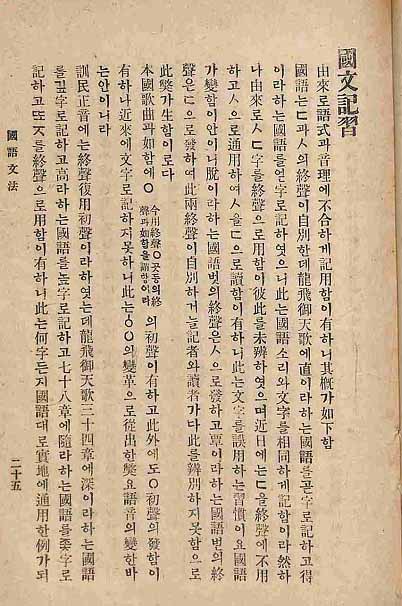 國文記習
由來로語式과音理에不合하게記用함이有하니其槪가如下함
國語는ㄷ과ㅅ의終聲이自別한데龍飛御天歌에直이라하는國語를곧字로記하고得
이라하는國語를얻字로記하엿으니此는國語소리와文字를相同하게記함이라然하
나由來로ㅅㄷ字를終聲으로用함이彼此를未辨하엿으며近日에는ㄷ을終聲에不用
하고ㅅ으로通用하여ㅅ을ㄷ으로讀함이有하니此는文字를誤用하는習慣이요國語
가變함이안이니脫이라하는國語벗의終聲은ㅅ으로發하고票이라하는國語벋의終
聲은ㄷ으로發하여此兩終聲이自別하거늘記者와讀者가다此를辨別하지못함으로
此獘가生함이로다
本國歌曲과如함에ㆁ今用終聲ㅇ곳은의終聲과如함을謂함이라의初聲이有하고此外에도ㆁ初聲의發함이
有하나近來에文字로記하지못하니此는ㆁㅇ의變革으로從出한獘요語音의變한바
는안이니라
訓民正音에는終聲復用初聲이라하엿는데龍飛御天歌三十四章에深이라하는國語
를깊字로記하고高라하는國語를높字로記하고七十八章에隨라하는國語를좇字로
記하고ㄸㅈ를終聲으로用함이有하니此는何字든지國語대로實地에通用한例가되
國語文法
二十五